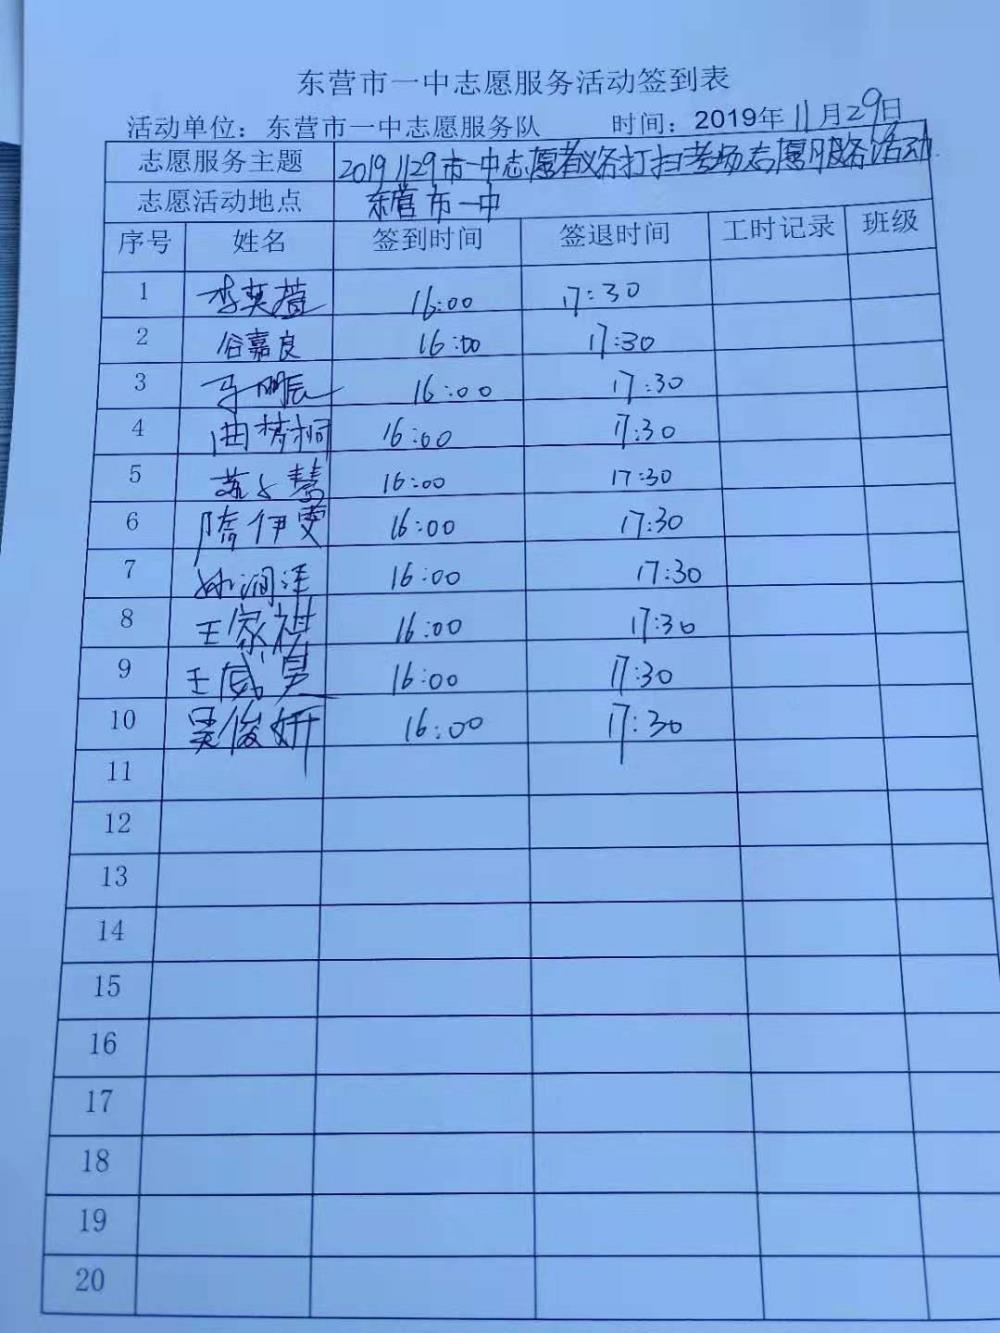 东营市一中志愿服务活动签到表
活动单位：东营市一中志愿服务队 时间：2019年11月29日
志愿服务主题 2019 1129市一中志愿者义务打扫考场志愿服务活动
志愿活动地点 东营市一中
序号 姓名 签到时间 签退时间 工时记录 班级
1 李英萱 16:00 17:30
2 谷嘉良 16:00 17:30
3 马鹏辰 16:00 17:30
4 曲梦桐 16:00 17:30
5 苏 慧 16:00 17:30
6 隋伊雯 16:00 17:30
7 16:00 17:30
8 王家祺 16:00 17:30
9 王威昊 16:00 17:30
10 吴俊妍 16:00 17:30
11
12
13
14
15
16
17
18
19
20